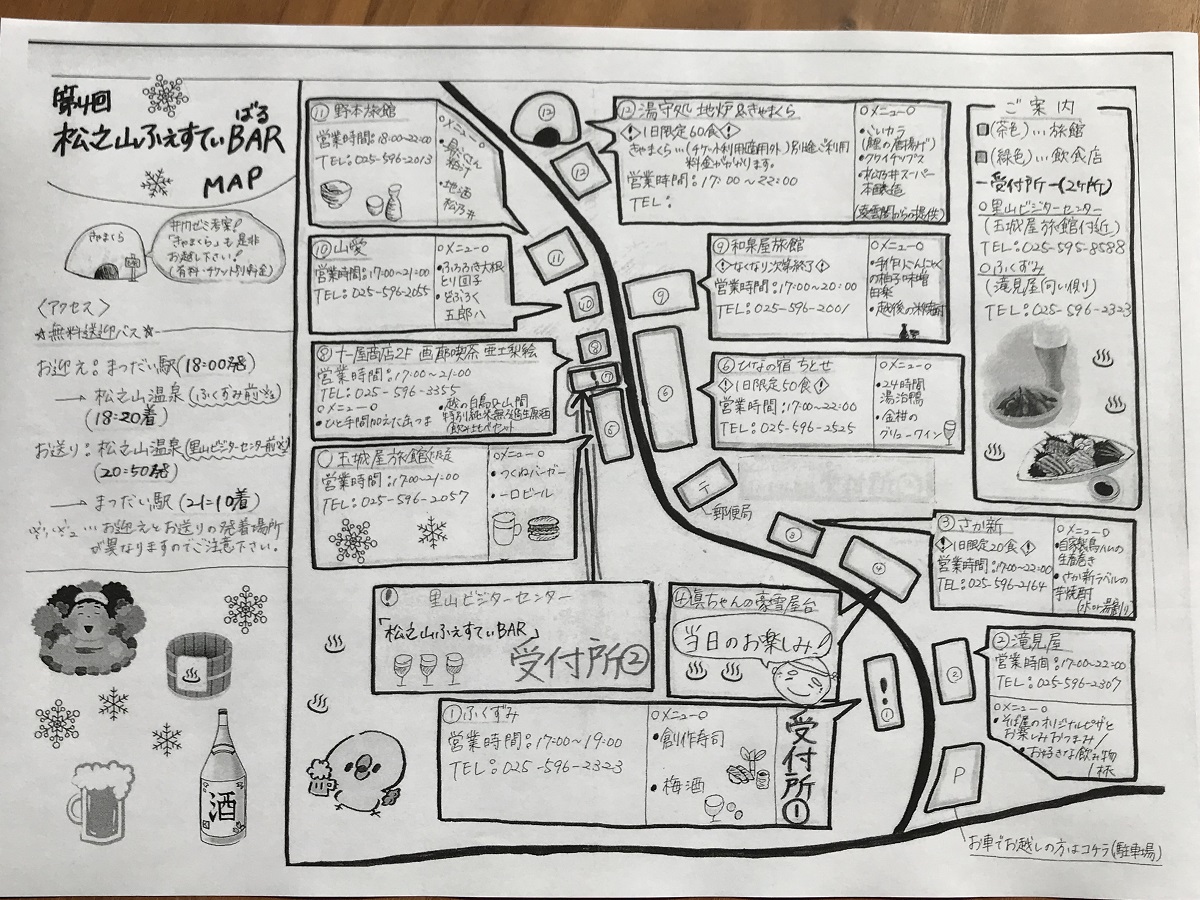 第4回
ばる
松之山ふぇすてぃBAR
MAP
きゃまくら
井力ゼミ考案!
「きゃまくら」も是非
お越し下さい!
(有料・チケット別料金)
〈アクセス〉
☆無料送迎バス☆
お迎え:まつだい駅(18:00発)
→松之山温泉(ふくずみ前
(18:20着)
お送り:松之山温泉(里山ビジターセンター前
(20:50発)
→まつだい駅(21:10着)
…お迎えとお送りの発着場所
が異なりますのでご注意下さい。
酒
⑪野本旅館
営業時間:18:00~22:00
TEL:025-596-2013
○メニュー○
・地酒
松乃井
⑩山愛
営業時間:17:00~21:00
TEL:025-596-2055
○メニュー○
・ふろふき大根
とり団子
・どぶろく
五郎八
⑧十一屋商店2F 画廊喫茶 亜土梨絵
営業時間:17:00~21:00
TEL:025-596-3355
○メニュー○
・ひと手間加えた缶つま
・越の白鳥&山間
特別純米無濾過生原酒
(飲み比べセット
玉城屋旅館
営業時間:17:00~21:00
TEL:025-596-2057
○メニュー○
・つくねバーガー
・一口ビール
里山ビジターセンター
「松之山ふぇすてぃBAR」
受付所②
①ふくずみ
営業時間:17:00~19:00
TEL:025-596-2323
○メニュー○
・創作寿司
・梅酒
受付所①
④慎ちゃんの豪雪屋台
当日のお楽しみ!
⑫湯守処 地炉&きゃまくら
!1日限定60食!
きゃまくら…(チケット利用適用外)別途ご利用
料金がかかります。
営業時間:17:00~22:00
TEL:
○メニュー○
・こいカラ
(鯉の唐揚げ)
・クワイチップス
・松乃井スーパー
本醸造
(凌雲閣からの提供)
⑨和泉屋旅館
!なくなり次第終了!
営業時間:17:00~20:00
TEL:025-596-2001
○メニュー○
・手作りこんにゃく
の柚子味噌
田楽
・越後の米焼酎
⑥ひなの宿 ちとせ
!1日限定50食!
営業時間:17:00~22:00
TEL:025-596-2525
○メニュー○
・24時間
湯治鴨
・金柑の
グリューワイン
③さか新
!1日限定20食!
営業時間:17:00~22:00
TEL:025-596-2164
○メニュー○
・自家製鳥ハムの
生春巻き
・さか新ラベルの
芋焼酎
(水or湯割り)
②滝見屋
営業時間:17:00~22:00
TEL:025-596-2307
○メニュー○
・そば屋のオリジナルピザと
お楽しみおつまみ
・お好きな飲み物
1杯
⑫
⑫
⑪
⑩
⑨
⑧
⑦
⑥
⑤
〒
郵便局
③
④
②
!
①
P
お車でお越しの方はコチラ(駐車場)
ご案内
(茶色)…旅館
(緑色)…飲食店
ー受付所ー(2ヶ所)
○里山ビジターセンター
(玉城屋旅館付近)
TEL:025-595-8588
○ふくずみ
(滝見屋向い側)
TEL:025-596-2323